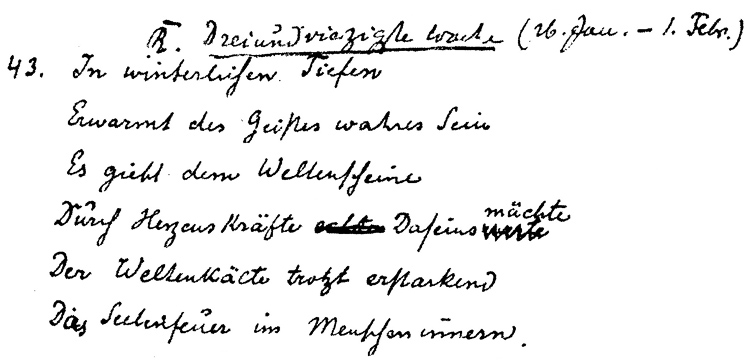 R. Dreiundvierzigste Woche (26. Jan. – 1. Febr.)
43. In winterlichen Tiefen
Erwarmt des Geistes wahres Sein
Es giebt dem Weltenscheine
Durch Herzenskräfte echte Daseinsmächte werte
Der Weltenkälte trotzt erstarkend
Das Seelenfeuer im Menscheninnern.